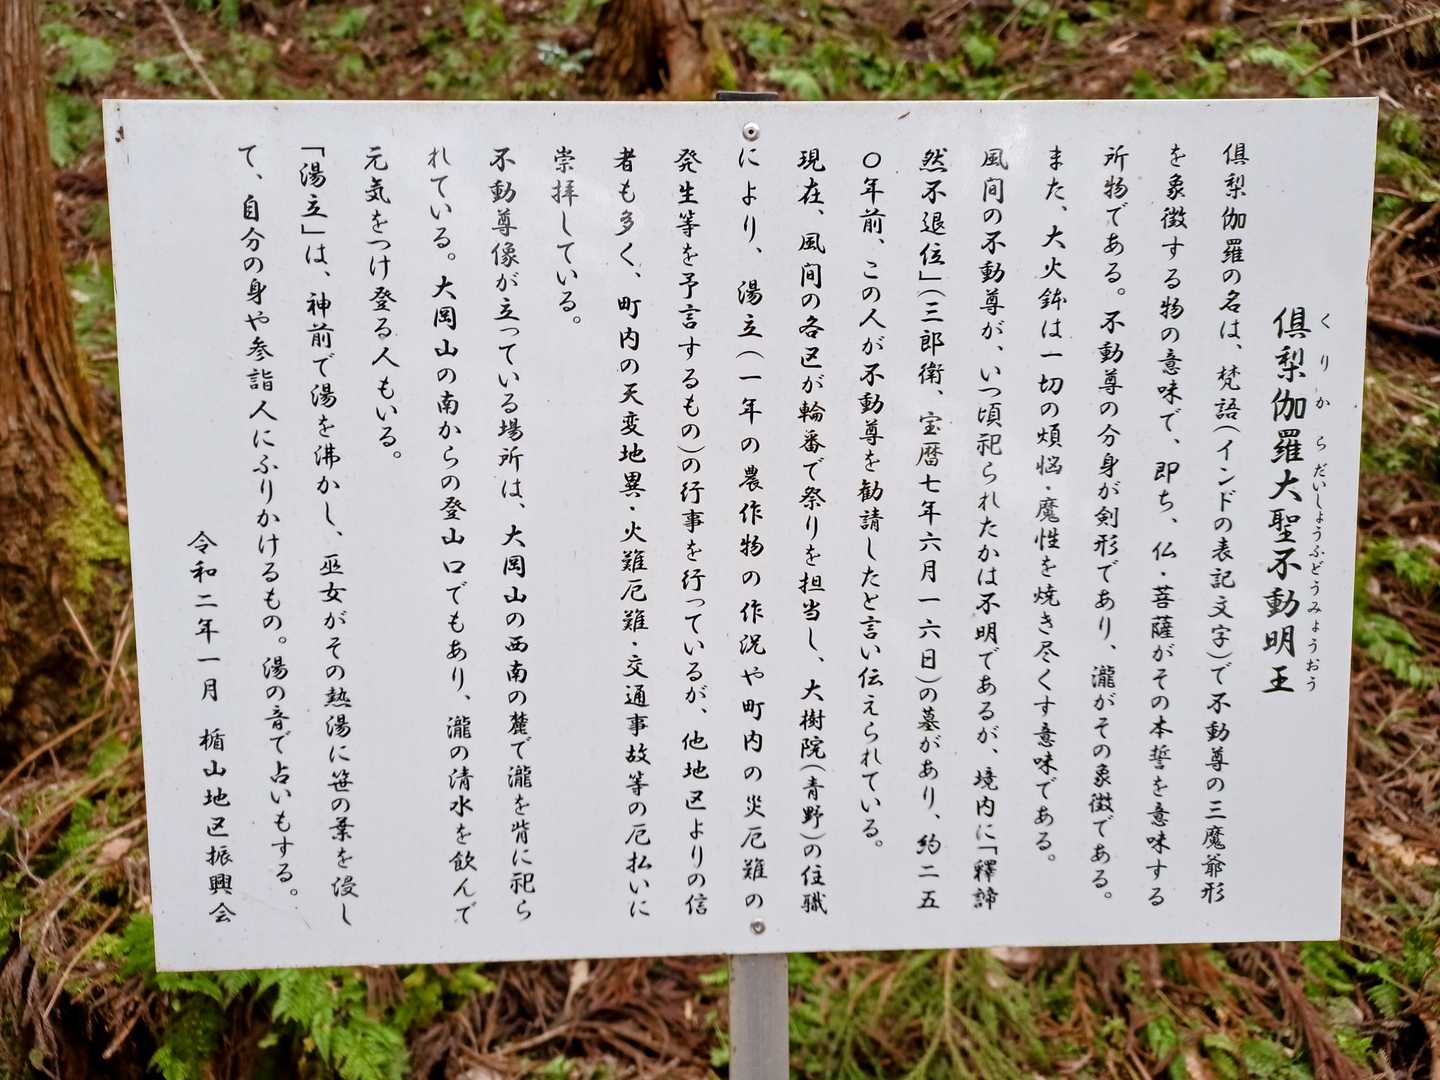 くりからだいしょうふどうみょうおう
倶梨伽羅大聖不動明王
倶梨伽羅の名は、梵語(インドの表記文字)で不動尊の三魔爺形
を象徴する物の意味で、即ち、仏・菩薩がその本誓を意味する
所物である。不動尊の分身が剣形であり、瀧がその象徴である。
また、大火鉢は一切の煩悩・魔性を焼き尽くす意味である。
風間の不動尊が、いつ頃祀られたかは不明であるが、境内に「釋諦
然不退位」(三郎衛、宝暦七年六月一六日)の墓があり、約二五
〇年前、この人が不動尊を勧請したと言い伝えられている。
現在、風間の各区が輪番で祭りを担当し、大樹院(青野)の住職
により、湯立(一年の農作物の作況や町内の災厄難の
発生等を予言するもの)の行事を行っているが、他地区よりの信
者も多く、町内の天変地異・火難厄難・交通事故等の厄払いに
崇拝している。
不動尊像が立っている場所は、大岡山の西南の麓で瀧を背に祀ら
れている。大岡山の南からの登山口でもあり、瀧の清水を飲んで
元気をつけ登る人もいる。
「湯立」は、神前で湯を沸かし、巫女がその熱湯に笹の葉を浸し
て、自分の身や参詣人にふりかけるもの。湯の音で占いもする。
令和二年一月 楯山地区振興会